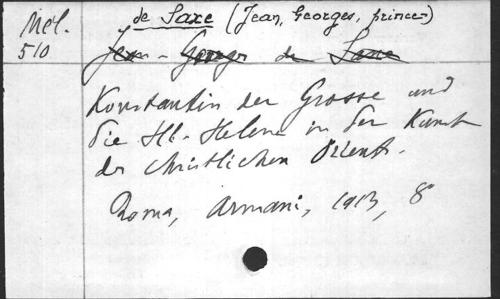 Mél.
510
de Saxe (Jean, Georges, prince)
Jean-George de Saxe
Konstantin der Grosse und
die Hl. Helena in der Kunst
des christlichen Orients.
Roma, Armani, 1913, 8°